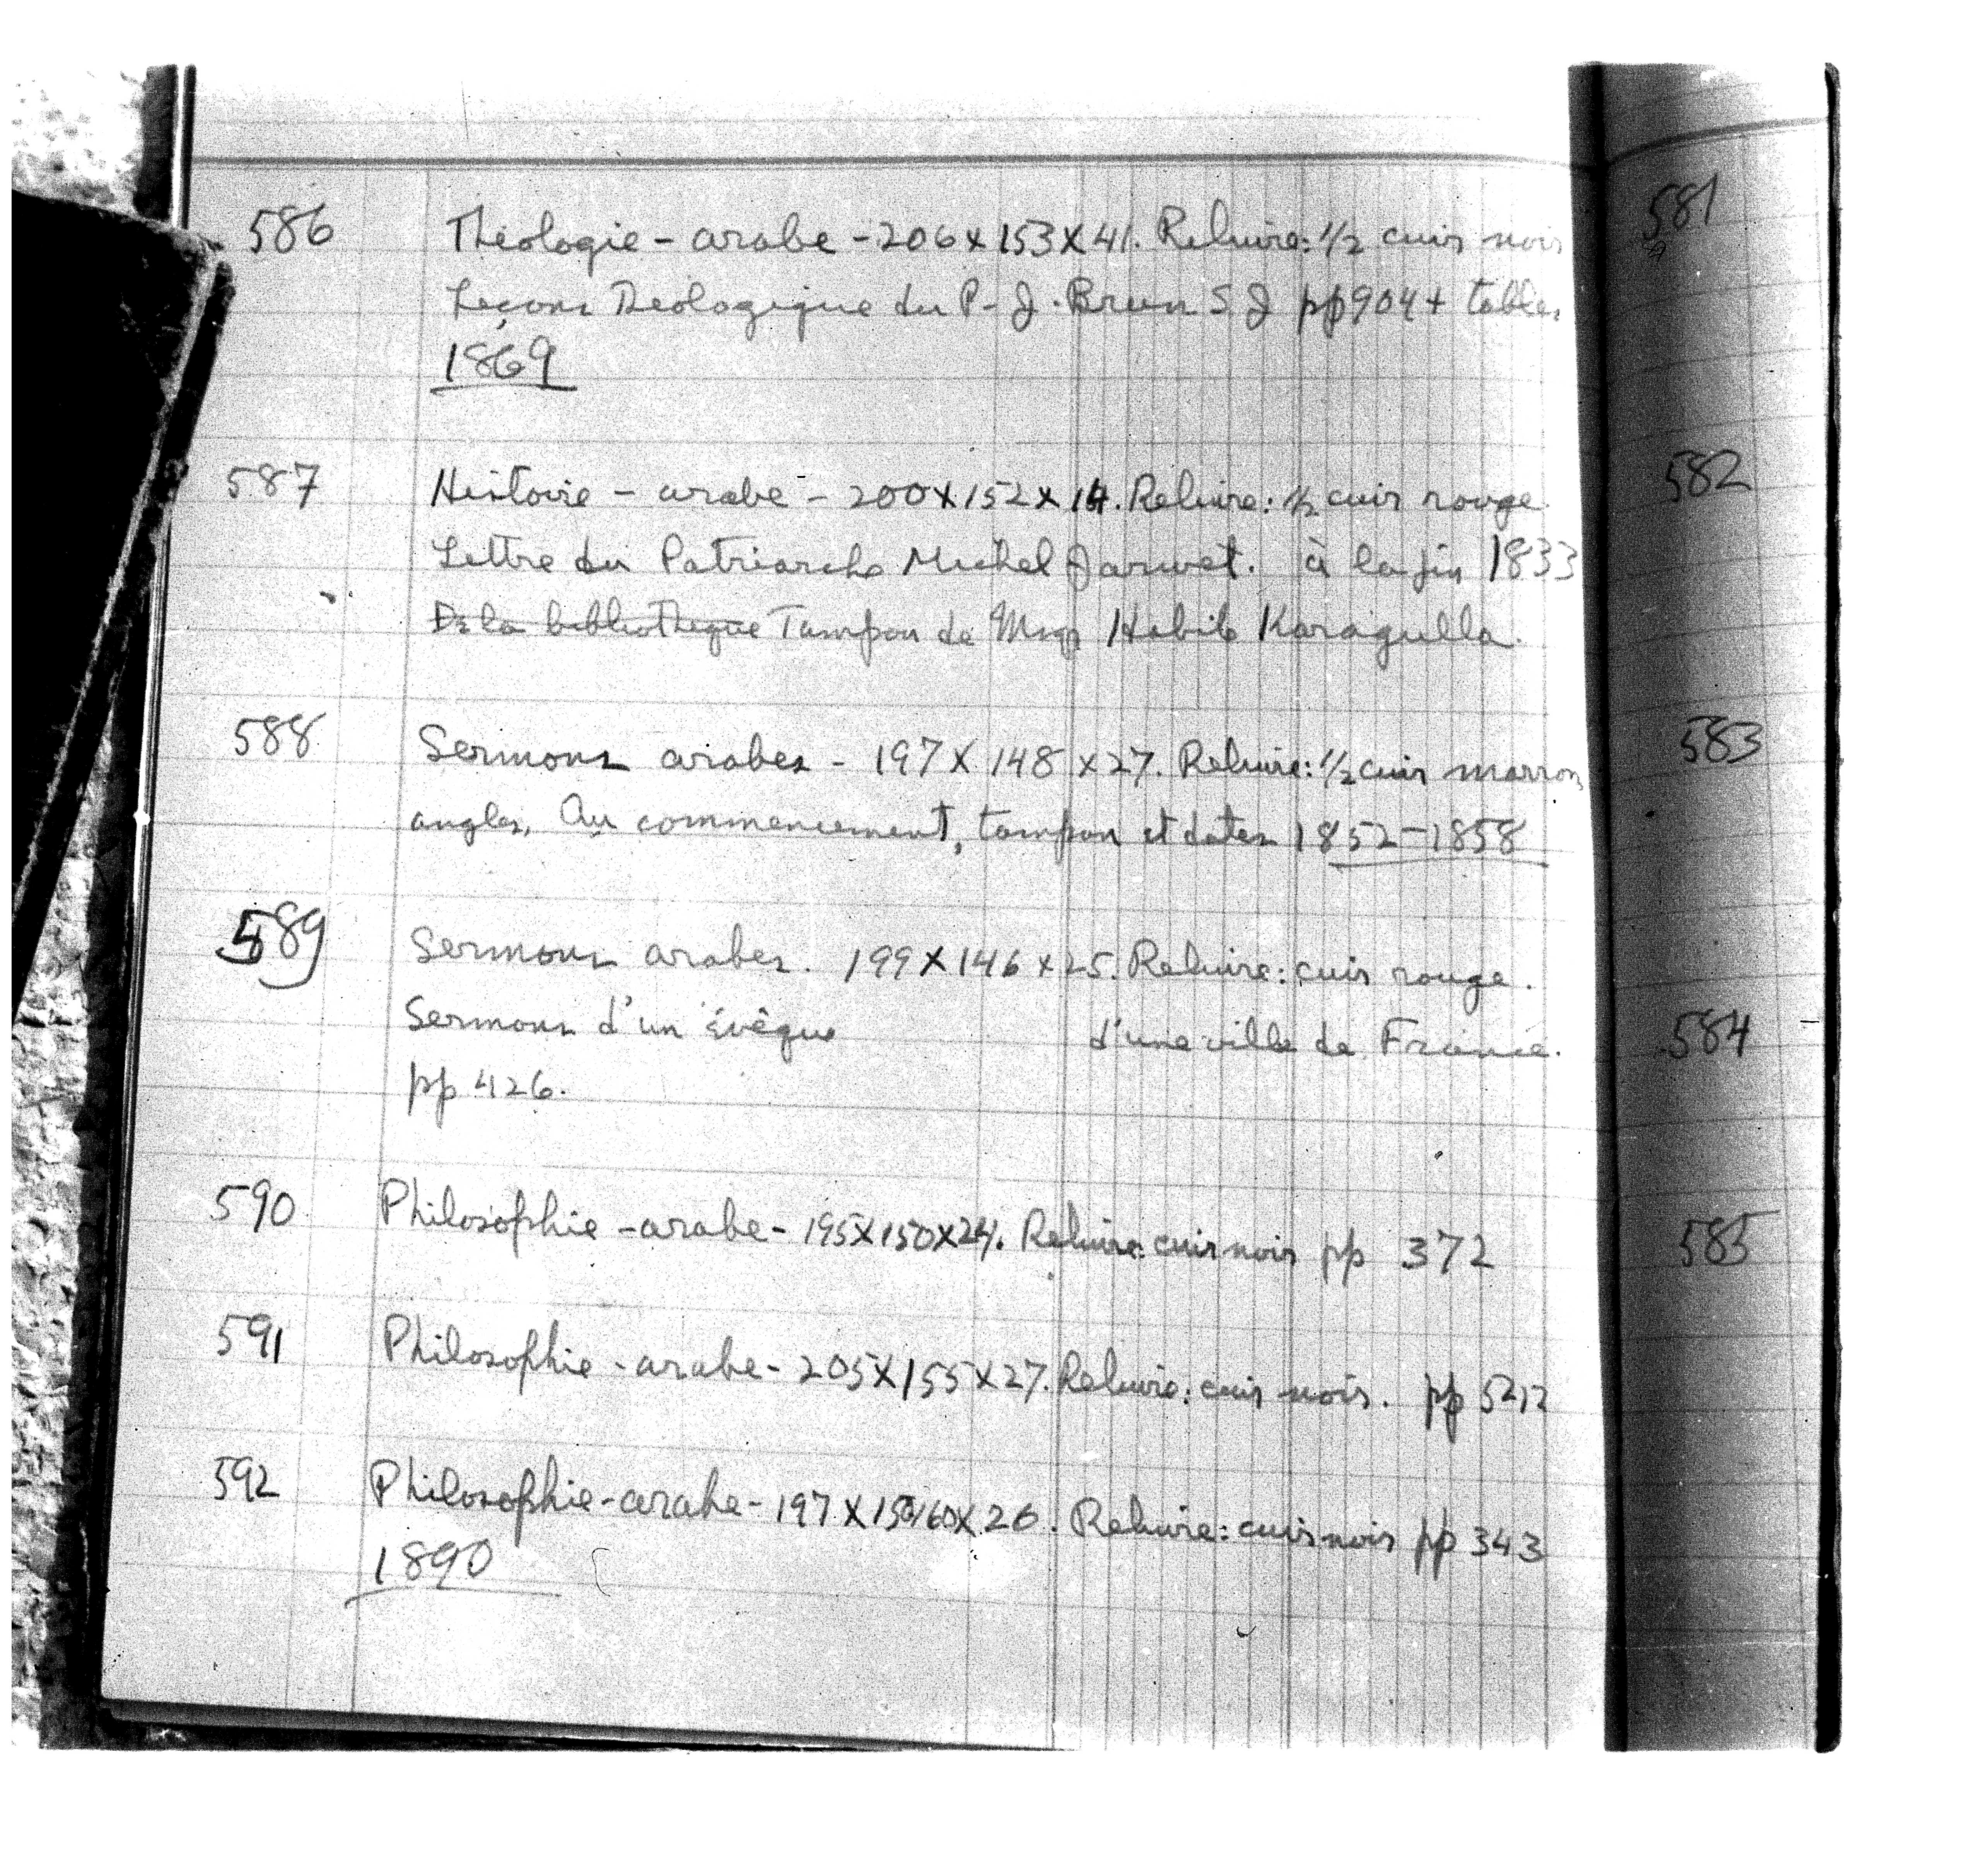 586 Théologie - arabe - 206 x 153 x 41. Reluire: 1/2 cuir noir
Leçons Théologique du P. J. Brun S J pp 904 + tables
1869
587 Histoire - arabe - 200 x 152 x 14. Reluire: 1/2 cuir rouge
Lettre du Patriarche Michel Jarwet. à la fin 1833
De la bibliothèque Tampon de Mogr Habib Karagulla.
588 Sermons arabes - 197 x 148 x 27. Reluire: 1/2 cuir marron
angles. Au commencement, tampon et dates 1852-1858
589 Sermons arabes. 199 x 146 x 25. Reluire: cuir rouge.
Sermons d'un évêque d'une ville de France.
pp 426.
590 Philosophie - arabe - 195 x 150 x 24. Reluire: cuir noir pp 372
591 Philosophie - arabe - 205 x 155 x 27. Reluire: cuir noir. pp
592 Philosophie - arabe - 197 x 150/160 x 26. Reluire: cuir noir pp 343
1890
581
582
583
584
585